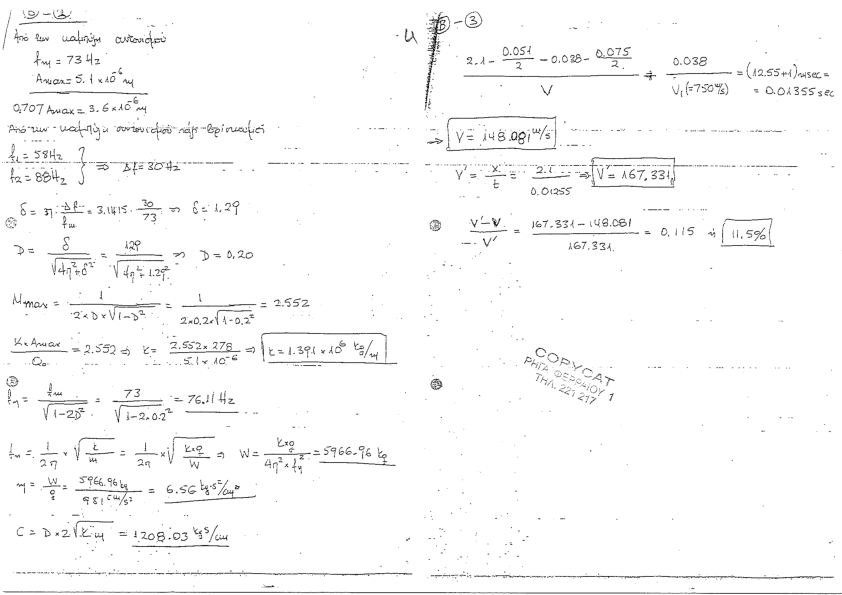 Από την καμπύλη συντονισμού
fm = 73 Hz
Amax = 5.1 x 10^-6 m
0,707 Amax = 3.6 x 10^-6 m
Από την καμπύλη συντονισμού πάλι βρίσκουμε
f1 = 58Hz
f2 = 88Hz } ⇒ Δf = 30 Hz
δ = π · Δf/fm = 3.1415 · 30/73 ⇒ δ = 1.29
D = δ/√(4π²+δ²) = 1.29/√(4π²+1.29²) ⇒ D = 0.20
Mmax = 1/(2×D×√(1-D²)) = 1/(2×0.2×√(1-0.2²)) = 2.552
K×Amax/Qo = 2.552 ⇒ K = 2.552×278/5.1×10^-6 ⇒ K = 1.391×10^6 kg/m
fn = fm/√(1-2D²) = 73/√(1-2·0.2²) = 76.11 Hz
fn = 1/2π × √(K/m) = 1/2π × √(K×g/W) ⇒ W = K×g/(4π²×fn²) = 5966.96 kg
m = W/g = 5966.96 kg/981 cm/s² = 6.56 kg·s²/cm
C = D×2√(K·m) = 1208.03 kg s/cm
B-3
(2.1 - 0.051/2 - 0.038 - 0.075/2)/V + 0.038/V1(=750 m/s) = (12.55+1) msec =
= 0.01355 sec
⇒ V = 148.081 m/s
V' = x/t = 2.1/0.01255 ⇒ V' = 167.331
(V'-V)/V' = (167.331-148.081)/167.331 = 0.115 ή 11.5%
COPYCAT
ΡΗΓΑ ΦΕΡΡΑΙΟΥ 1
ΤΗΛ. 221 217